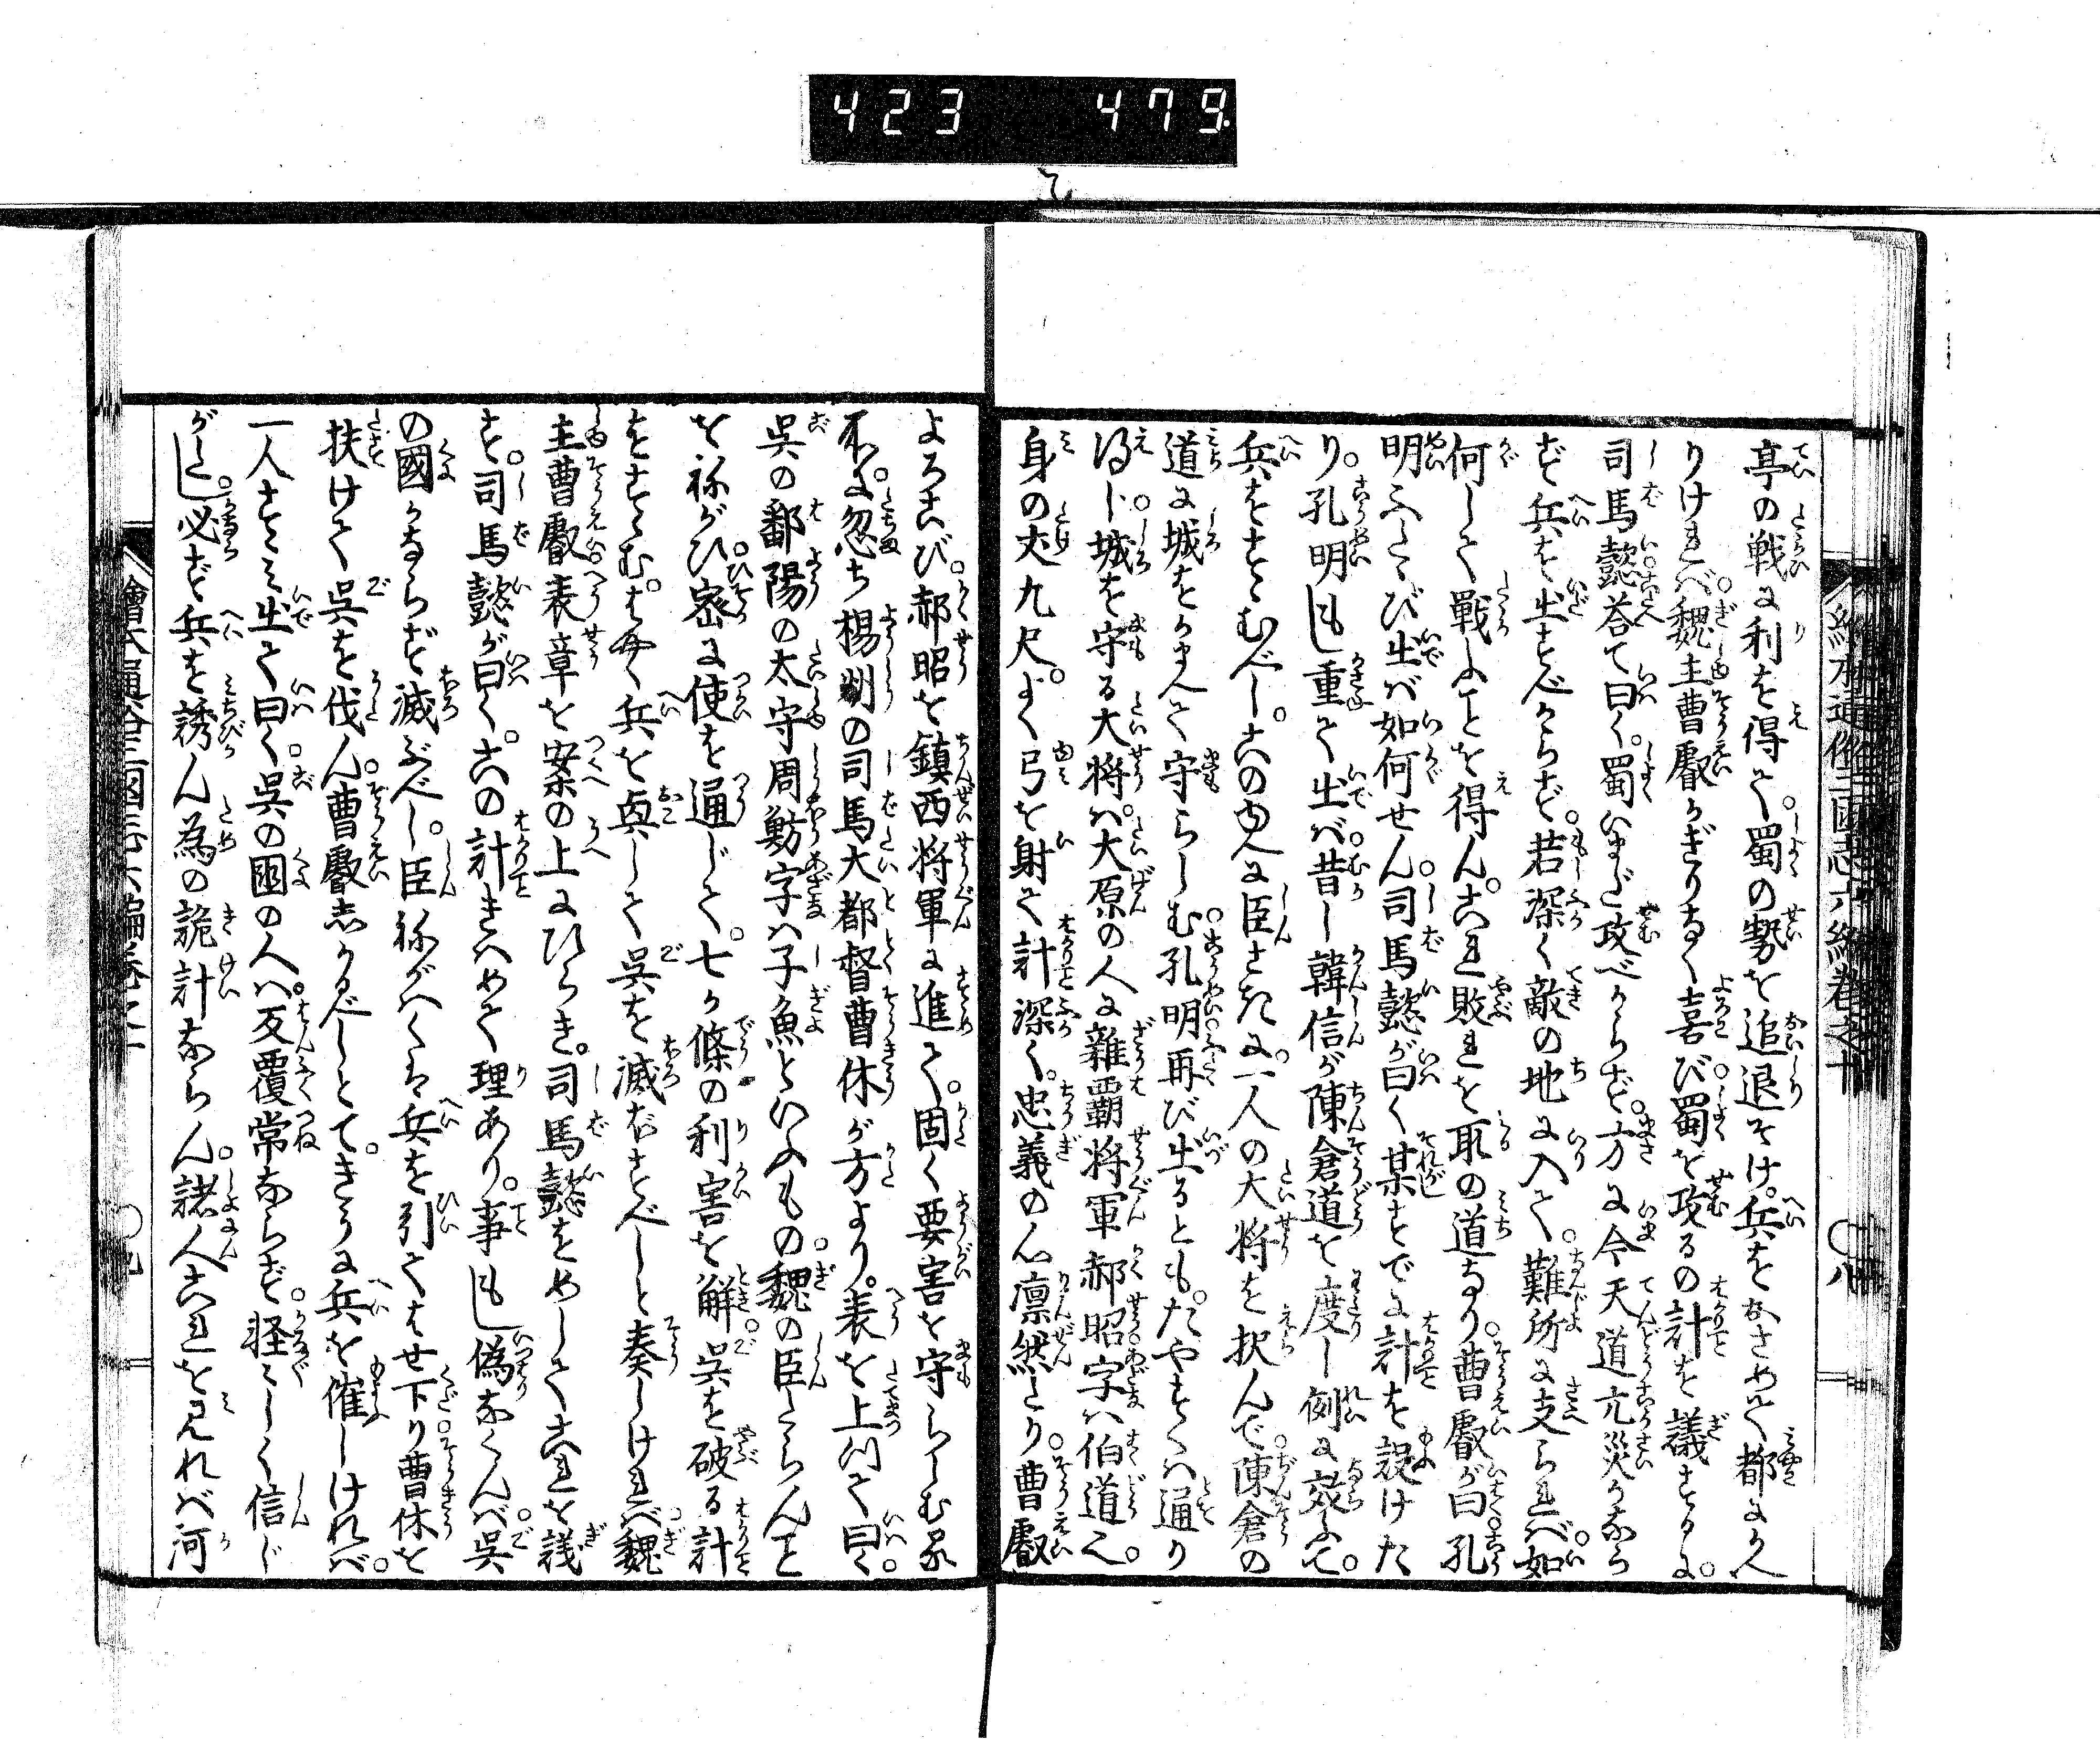 423 479
繪本通俗三國志六編卷之十 〇八
亭の戦に利を得て。蜀の勢を追退そけ。兵をおさめて都にかへ
りければ。魏主曹叡かぎりなく喜び。蜀を攻るの計を議するに。
司馬懿荅て曰く。蜀いまだ攻べからず。方に今天道亢災かなら
ず兵を出すべからず。若深く敵の地に入て。難所に支られば。如
何して戰ふことを得ん。これ敗れを取の道なり。曹叡が曰孔
明ふたゝび出ば如何せん。司馬懿が曰く某すでに計を設けた
り。孔明もし重て出ば。昔し韓信が陳倉道を度し例に效ふて。
兵をすゝむべし。この由へに臣さきに。一人の大将を択んで。陳倉の
道に城をかまへて守らしむ。孔明再び出るとも。たやすくは通り
得じ。城を守る大将は。大原の人に雜覇将軍郝昭字は伯道へ。
身の丈九尺。よく弓を射て計深く。忠義の心凛然たり。曹叡
よろこび。郝昭を鎮西将軍に進めて。固く要害を守らしむる
不に。忽ち楊州の司馬大都督曹休が方より。表を上つて曰く。
呉の鄱陽の太守周魴字は子魚といふもの。魏の臣たらんこと
を祢がひ。密に使を通じて。七か條の利害を解。呉を破る計
をすゝむ。はやく兵を興して呉を滅ぼすべしと奏しければ。魏
主曹叡表章を案の上にひらき。司馬懿をめしてこれを議
す。司馬懿が曰く。この計きはめて理あり。事もし偽なくんば。呉
の國かならず滅ぶべし。臣祢がはくは兵を引てはせ下り曹休を
扶けて呉を伐ん。曹叡志かるべしとて。きうに兵を催しければ。
一人すゝみ出て曰く。呉の國の人は。反覆常ならず。軽〻しく信じ
がたし。必ず兵を誘ん為の詭計ならん。諸人これを見れば河
繪本通俗三國志六編卷之十 〇九